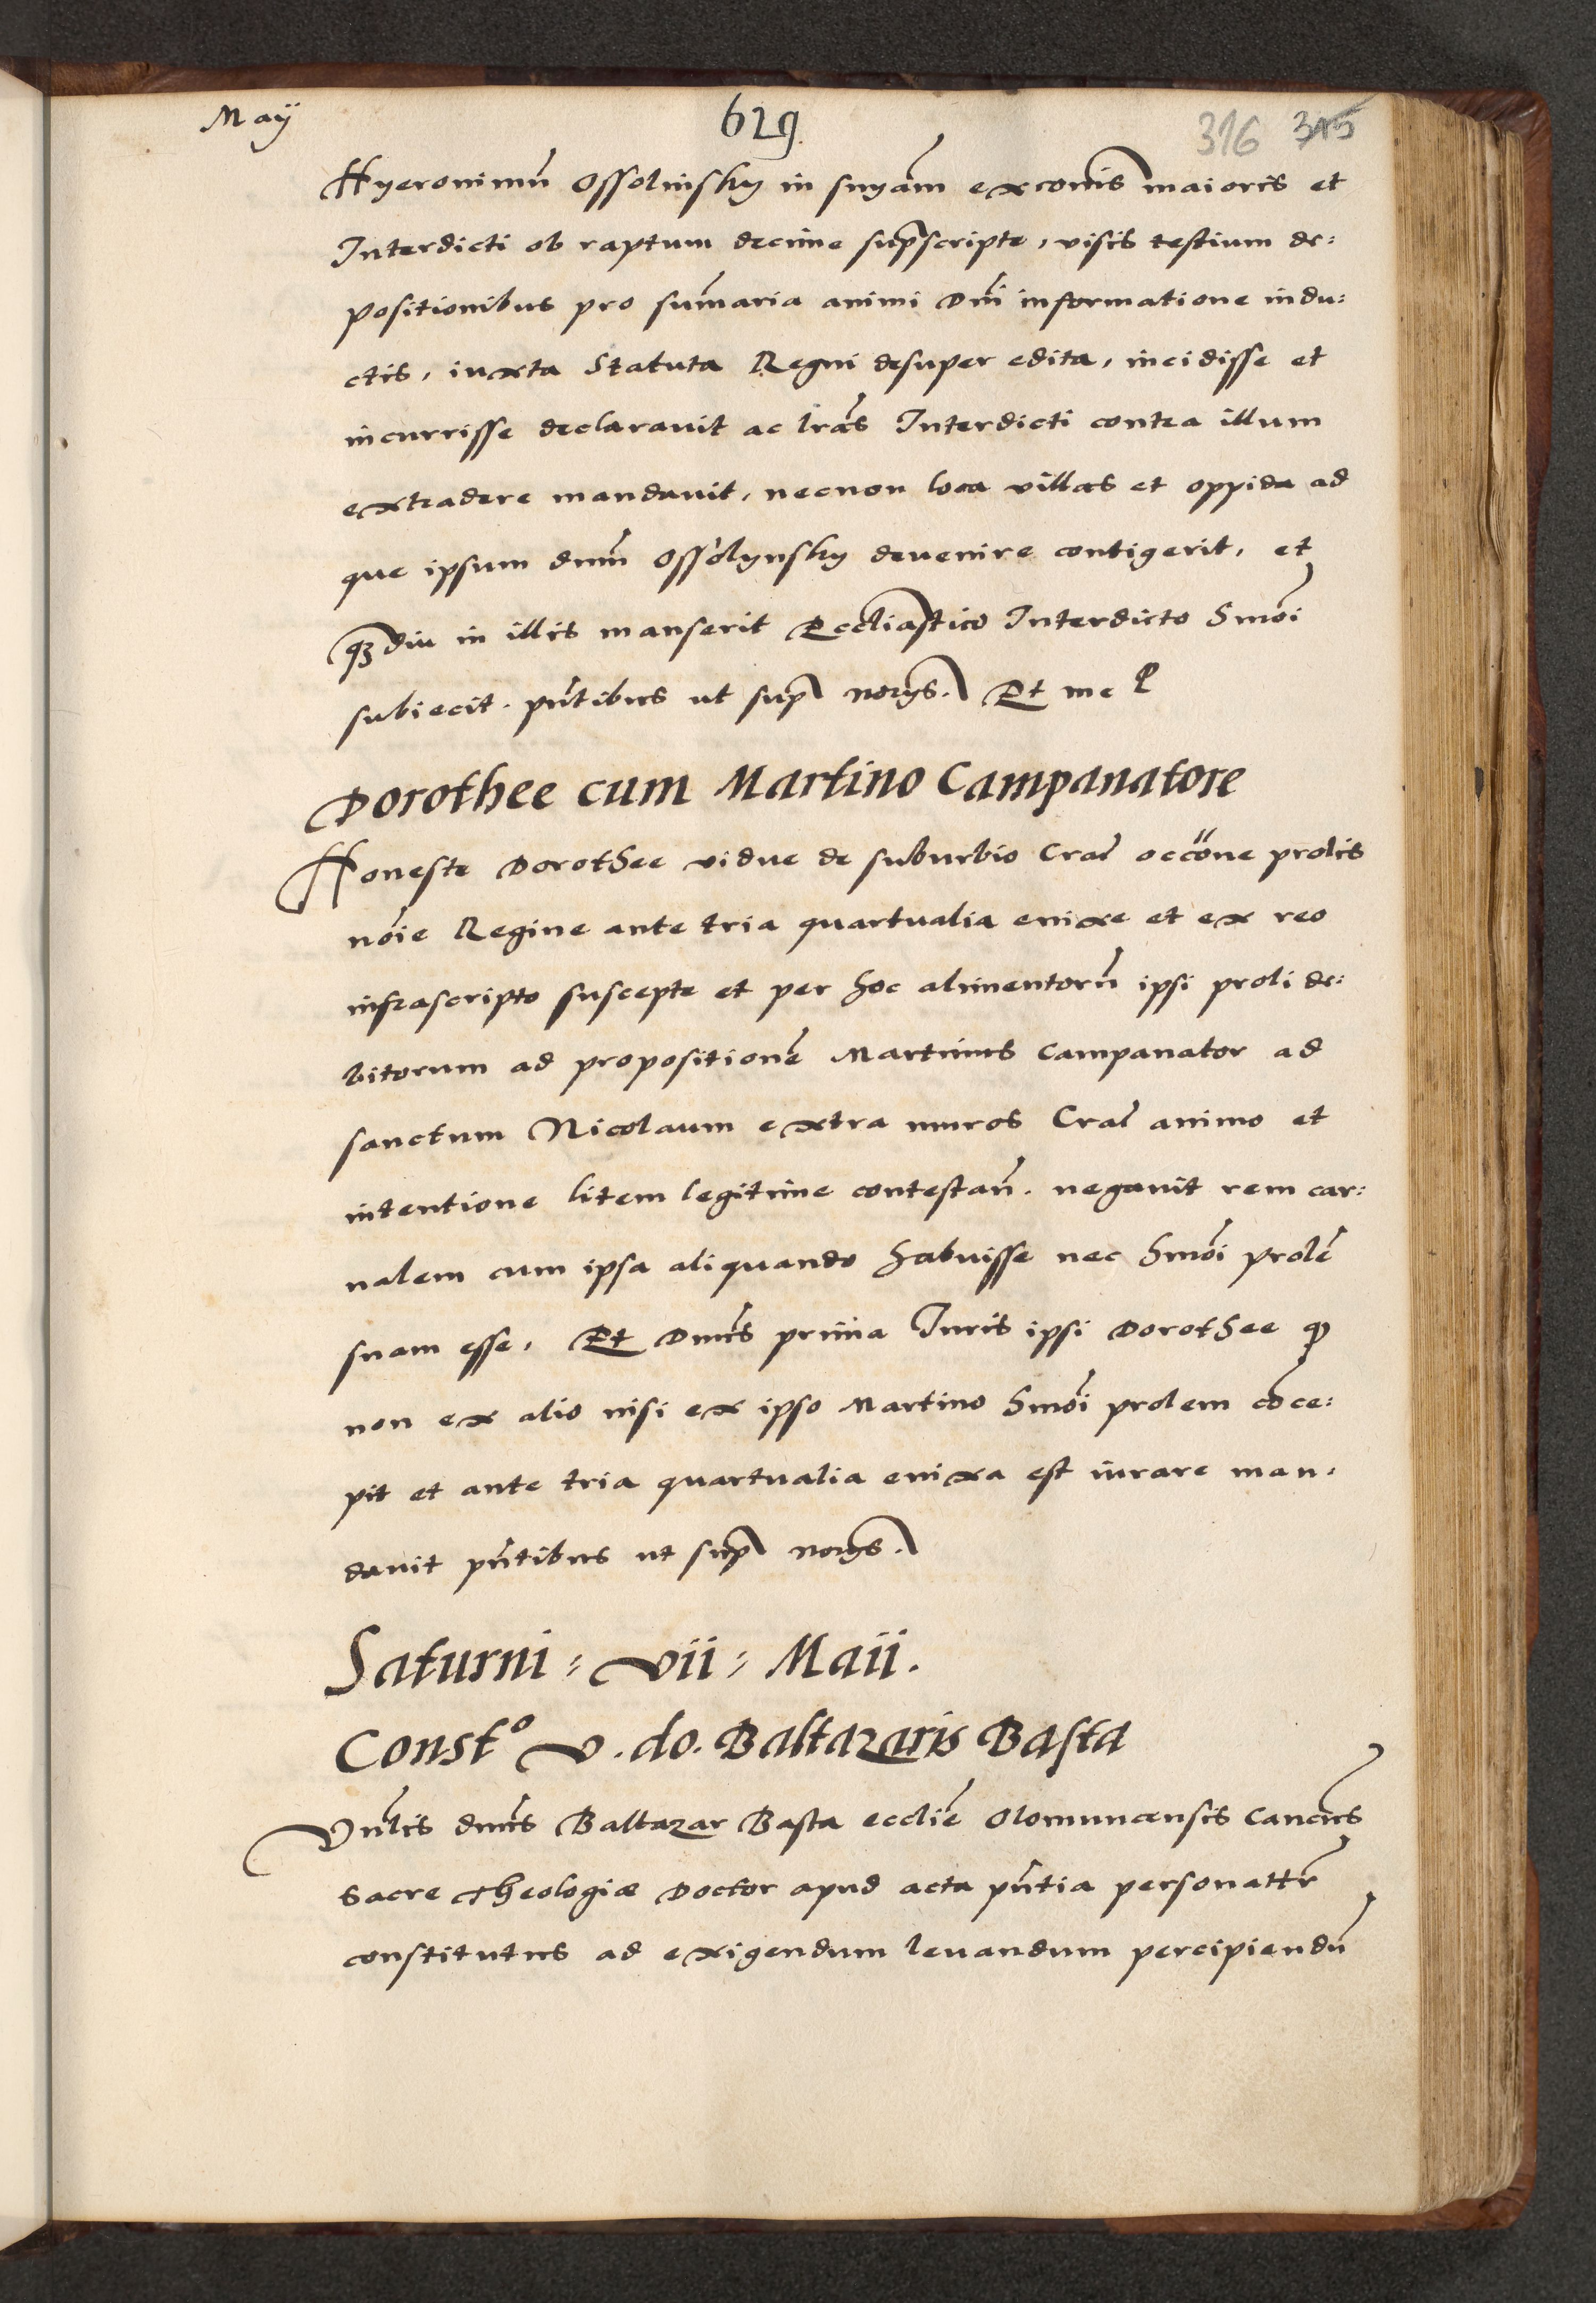 Maÿ
629
316 315
Hyeronimū Ossolinsky in snÿam excomīs maioris et
Interdicti ob raptum decime supscripte, visis testium de:
positionibus pro sum̄aria animi Dn̄i informatione indu:
ctis, iuxta Statuta Regni desuper edita, incidisse et
incurrisse declarauit ac lr̄as Interdicti contra illum
extradere mandauit, necnon loca villas et oppida ad
que ipsum dnm̄ Ossolynsky deuenire contigerit, et
qʒdiu in illis manserit Eccliastico Interdicto Smōi
subiecit. pn̄tibus ut sup norijs. Et me
Dorothee cum Martino Campanatore
Honeste Dorothee vidue de suburbio Cra͡ occōne prolis
nōie Regine ante tria quartualia enixe et ex reo
infrascripto suscepte et per hoc alimentorū ipsi proli de:
bitorum ad propositionē Martinus Campanator ad
sanctum Nicolaum extra muros Cra͡ animo et
intentione litem legitime contestan̄. negauit rem car:
nalem cum ipsa aliquando habuisse nec hmōi prolē
suam esse, Et Dnūs prima Iuris ipsi Dorothee ꝙ
non ex alio nisi ex ipso Martino hmōi prolem cōce:
pit et ante tria quartualia enixa est iurare man,
dauit pn̄tibus ut sup norijs.
Saturni = vii = Maii.
Constº v. do. Baltazaris Basta
Vnlīs dnūs Baltazar Basta eccliē Olomucensis Cancūs
Sacre Theologiæ Doctor apud acta pn̄tia personalr̄
constitutus ad exigendum leuandum percipiendū